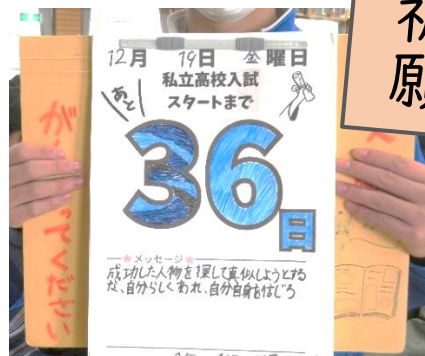 12月 19日 金曜日
私立高校入試
あと
スタートまで
36日
メッセージ
成功した人物を探して真似しようとする
な、自分らしくあれ、自分自身を信じろ
が
ってください
願